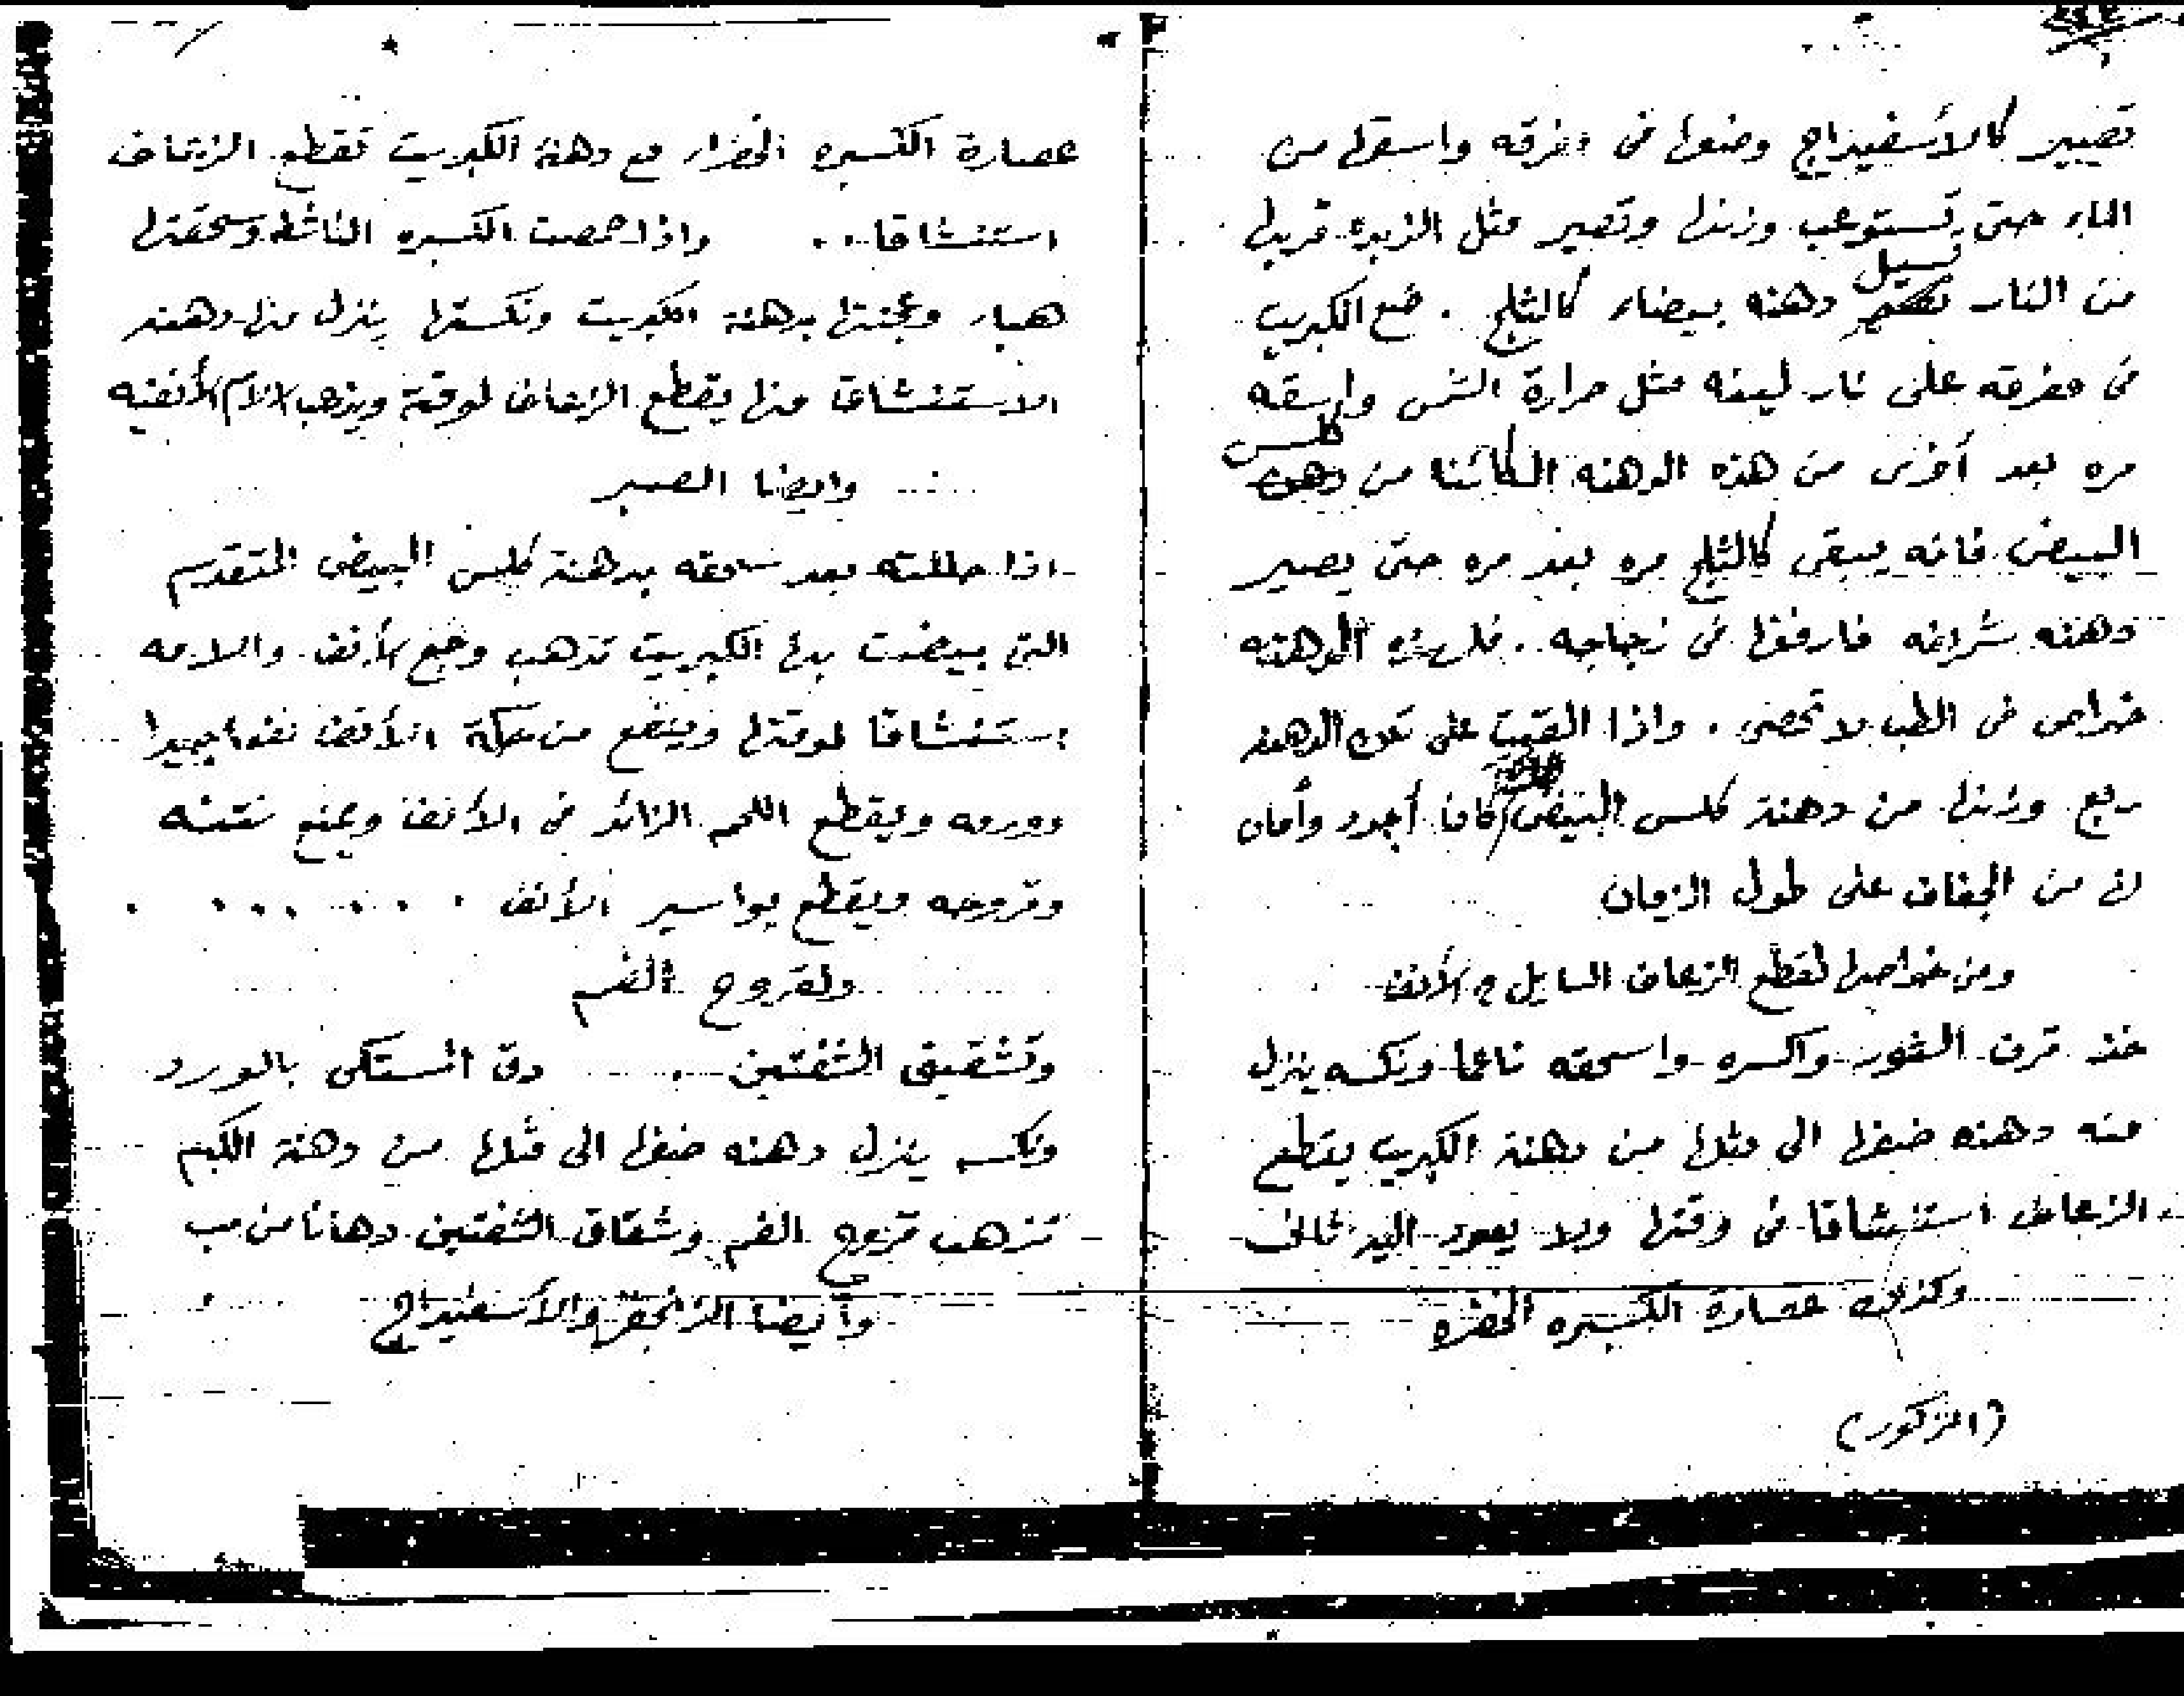 تصيير كالاسفيداج وضعها في مغرفه واسقها من
الماء حتى تستوعب وزنها وتصير مثل الزبده قربها
تسيل
من النار دهنه بيضاء كالثلج . ضع الكبريت
في مغرفه على نار لينه مثل حرارة الشمس واسقه
كلس
مره بعد أخرى من هذه الدهنه الكائنا من
البيض فانه يبقى كالثلج مره بعد مره حتى يصير
دهنه شراعه فارفعها في زجاجه . فلهذه الدهنه
خواص في الطب لا تحصى . واذا القيت على تلك الدهنه
ربع وزنها من دهنة كلس البيض كانا أجود وأمان
لها من الجفاف على طول الزمان
ومن خواصها لقطع الرعاف السايل من الأنف
خذ قرن الثور واكسره واسحقه ناعما ونكسه ينزل
منه دهنه ضفها الى مثلها من دهنة الكبريت يقطع
الرعاف استنشاقا في وقتها ولا يعود اليه ثانى
وكذلك عصارة الكسبره الخضره
(المذكور)
عصارة الكسبره الخضراء مع دهنة الكبريت تقطع الرعاف
استنشاقا .. واذا حمصت الكسبره الناشفه وسحقتها
هباء وعجنتها بدهنة الكبريت ونكستها ينزل منها دهنه
الاستنشاق منها يقطع الرعاف لوقته ويذهب الآم الأنفيه
وايضا الصبر
اذا حللته بعد سحقه بدهنة كلس البيض المتقدم
التى بيضت بها الكبريت تذهب وجع الأنف والامه
استنشاقا لوقتها وينفع من حكة الأنف نفعا جيدا
وورمه ويقطع اللحم الزائد في الأنف ويمنع نتنه
وقروحه ويقطع بواسير الأنف . . . . . . . .
ولقروح الفم
وتشقيق الشفتين . دق المستكى بالورد
ونكسه ينزل دهنه ضفها الى مثلها من دهنة
تذهب قروح الفم وشقاق الشفتين دهانا
وأيضا الزنجفر والاسفيداج